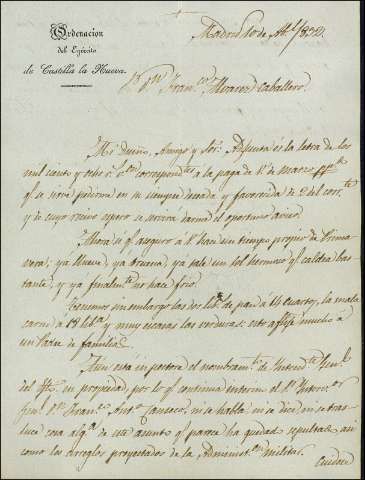 Ordenacion
del Egército
de Castilla la Nueva.
Madrid 10 de Ab.l /832.
S.r D.n Fran.co Alvarez Caballero.
Mi dueño, Amigo y Sor: Adjunta és la letra de los
mil ciento y ocho r.s v.on correspond.tes a la paga de V. de Marzo
q.e se sirve pedirme en su siempre amada y favorecida de 2 del cor.te
y de cuyo recivo espero se servirá darme el oportuno aviso.
Ahora si q.e aseguro a V. hace un tiempo propio de Prima
vera; ya llueve, ya truena, ya sale un sol hermoso q.e caldea bas
tante, y ya finalm.te no hace frio.
Tenemos sin embargo las dos lib.s de pan á 14 cuartos, la mala
carne á 18 lib.a y muy escasas las verduras: esto aflije mucho a
un Padre de familia.
Aun está in pectore el nombram.to de Intend.te Gen.l
del Ejto. en propiedad, por lo q.e continua interin el S.r Interv.or
gen.l D.n Fran.co Ant.o Canseco, ni se habla, ni se dice, ni se tras-
luce cosa alg.a de este asunto q.e parece ha quedado sepultado asi
como los arreglos proyectados de la Administ.on militar.
Cuidese